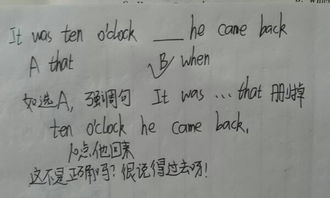 It was ten o'clock ___ he came back
A that B when
如选A, 强调句 It was ... that 删掉
ten o'clock he came back,
10点他回来
这不是正确吗? 很说得过去呀!